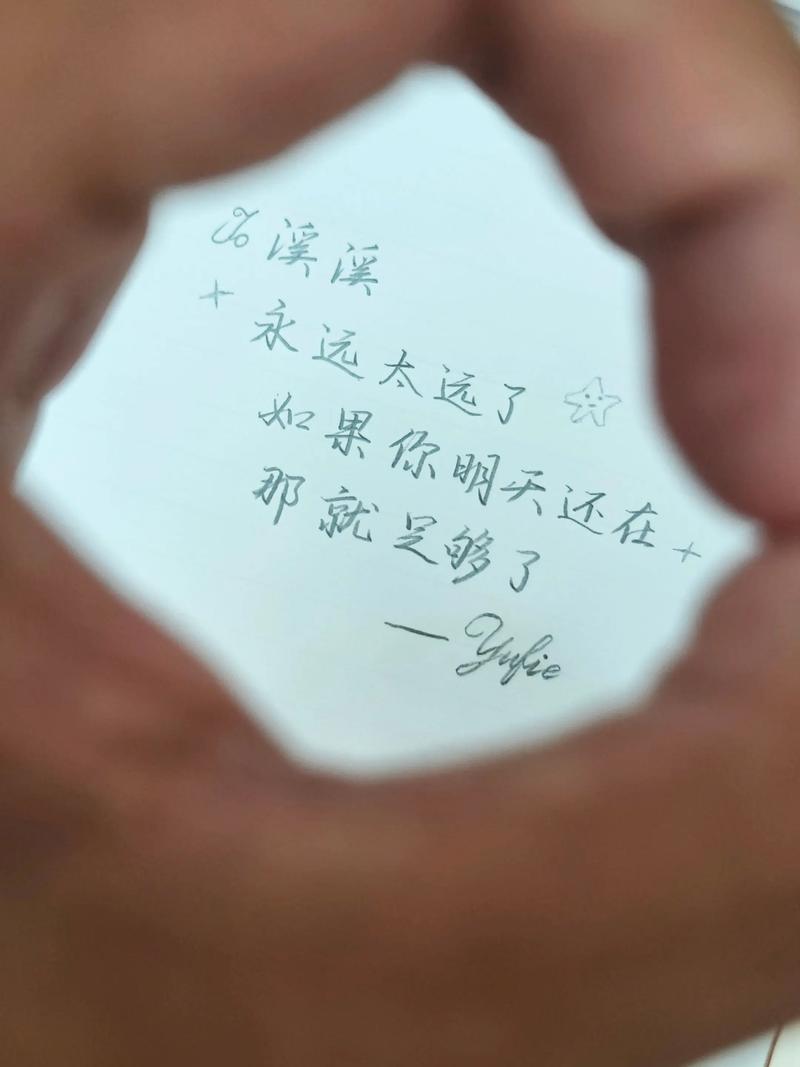 To 溪溪
永远太远了
如果你明天还在
那就足够了
— Yufie